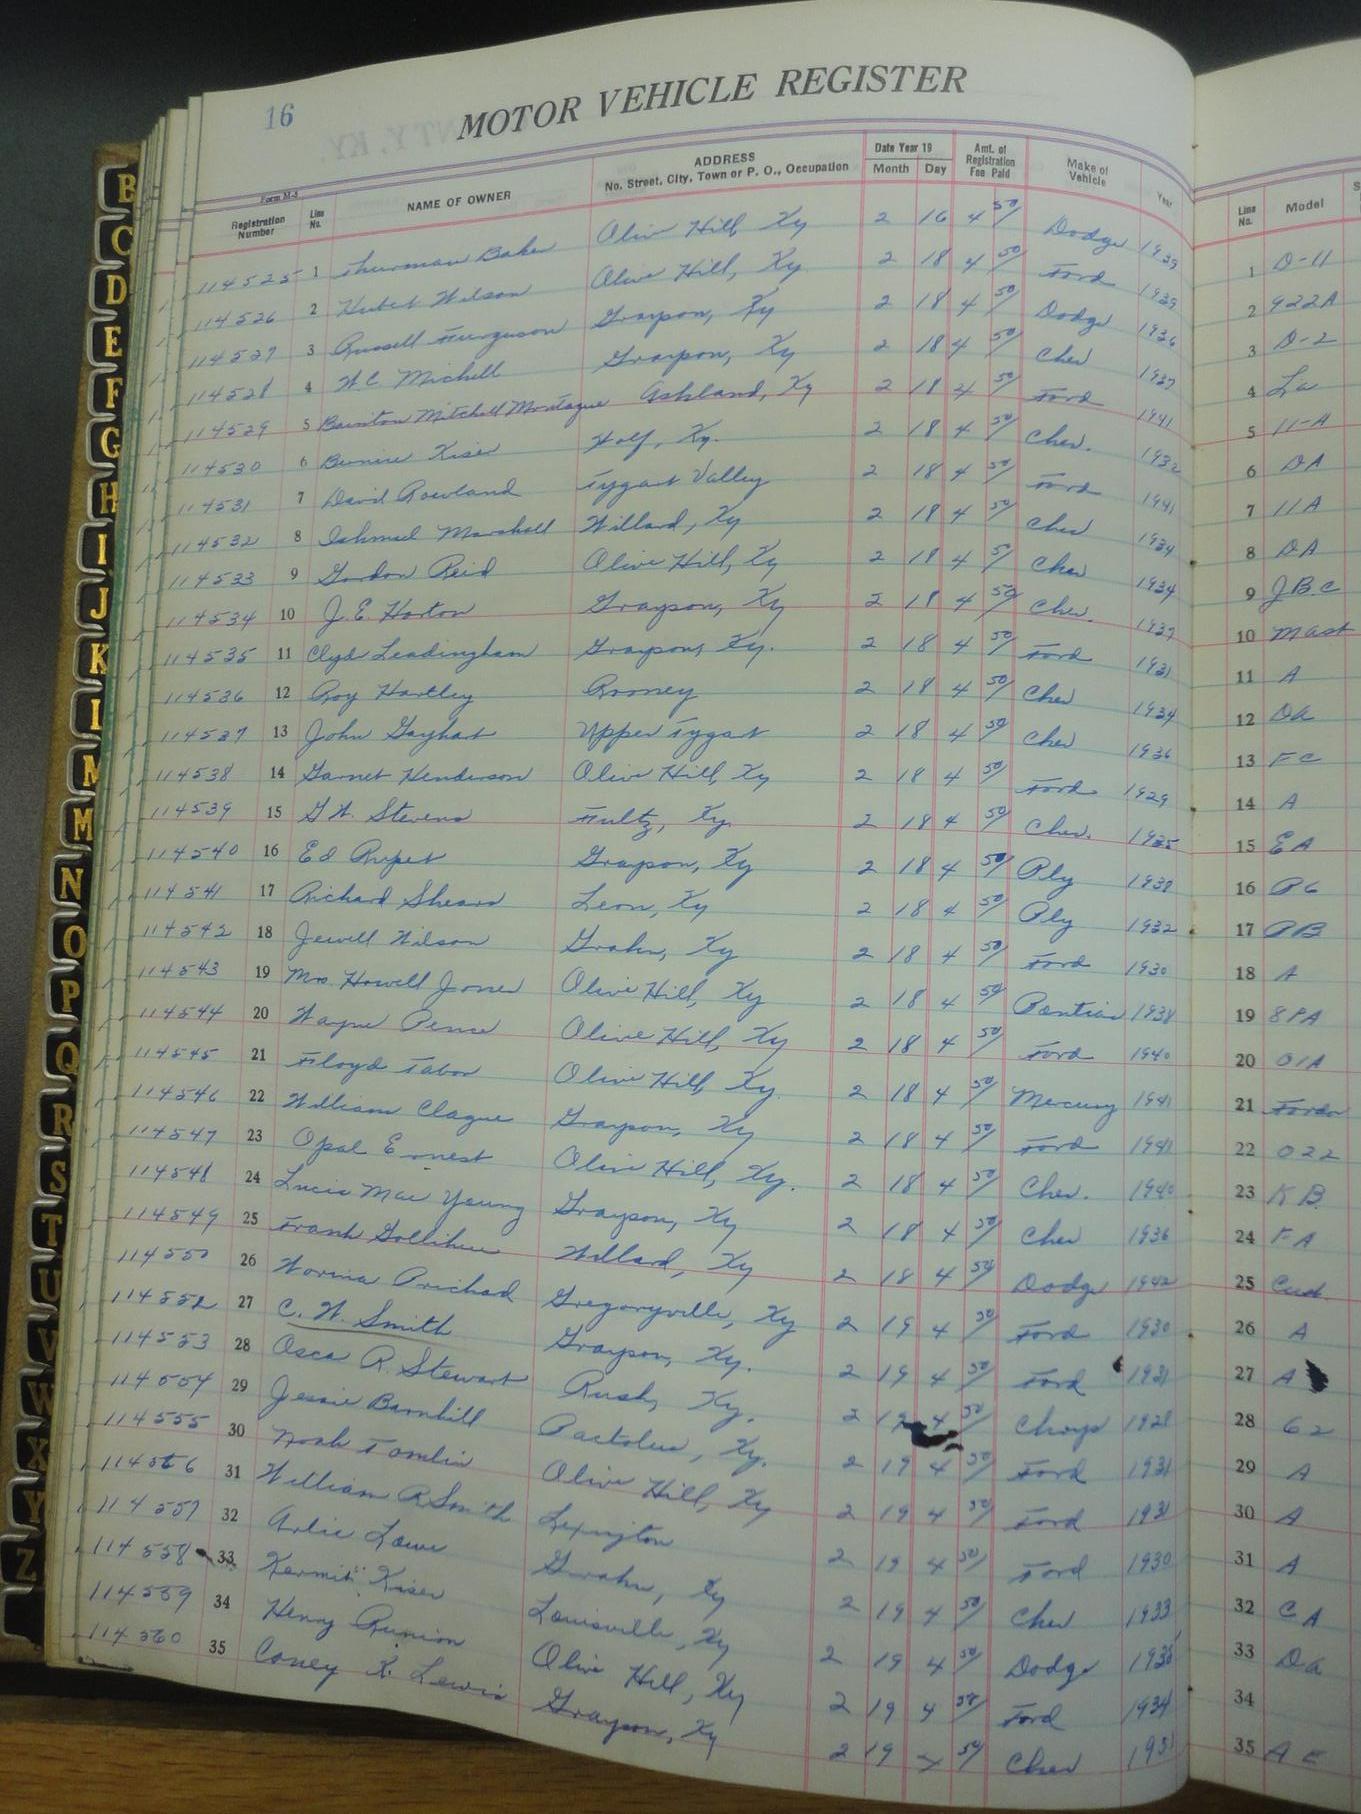 16
MOTOR VEHICLE REGISTER
Form M-5
Registration Number Line No. NAME OF OWNER ADDRESS No. Street, City, Town or P. O., Occupation Date Year 19 Month Day Amt. of Registration Fee Paid Make of Vehicle Year Line No. Model
114525 1 Thurman Baker Olive Hill, Ky 2 16 4 50/ Dodge 1939 1 D-11
114526 2 Hubert Wilson Olive Hill, Ky 2 18 4 50/ Ford 1939 2 922A
114527 3 Russell Furguson Grayson, Ky 2 18 4 50/ Dodge 1936 3 D-2
114528 4 W.C. Michell Grayson, Ky 2 18 4 50/ Chev 1937 4
114529 5 Mitchell Montague Ashland, Ky 2 18 4 50/ Ford 1941 5 11-A
114530 6 Bernice Kiser Ky. 2 18 4 50/ Chev. 1932 6 DA
114531 7 David Rowland Tygart Valley 2 18 4 50/ Ford 1941 7 11A
114532 8 Ishmael Marshall Willard, Ky 2 18 4 50/ Chev 1934 8 DA
114533 9 Gordon Reid Olive Hill, Ky 2 18 4 50/ Chev 1934 9 JBC
114534 10 J.E. Horton Grayson, Ky 2 18 4 50/ Chev. 1937 10 Mast
114535 11 Clyde Leadingham Grayson, Ky. 2 18 4 50/ Ford 1931 11 A
114536 12 Roy Hartley Rooney 2 18 4 50/ Chev 1934 12 Da
114537 13 John Gayhart Upper Tygart 2 18 4 50/ Chev 1936 13 FC
114538 14 Garnet Henderson Olive Hill, Ky 2 18 4 50/ Ford 1929 14 A
114539 15 G.W. Stevens Fultz, Ky. 2 18 4 50/ Chev. 1935 15 EA
114540 16 Ed Rupert Grayson, Ky 2 18 4 50/ Ply 1938 16 P6
114541 17 Richard Sheard Leon, Ky 2 18 4 50/ Ply 1932 17 PB
114542 18 Jewell Wilson Grahn, Ky 2 18 4 50/ Ford 1930 18 A
114543 19 Mrs. Howell Jones Olive Hill, Ky 2 18 4 50/ Pontiac 1938 19 8PA
114544 20 Wayne Pence Olive Hill, Ky 2 18 4 50/ Ford 1940 20 01A
114545 21 Floyd Tabor Olive Hill, Ky. 2 18 4 50/ Mercury 1941 21 Fordor
114546 22 William Clague Grayson, Ky 2 18 4 50/ Ford 1941 22 022
114547 23 Opal Ernest Olive Hill, Ky. 2 18 4 50/ Chev. 1940 23 KB
114548 24 Lucie Mae Young Grayson, Ky 2 18 4 50/ Chev 1936 24 FA
114549 25 Frank Gollihue Willard, Ky 2 18 4 50/ Dodge 1942 25 Cust.
114550 26 Worina Prichard Gregoryville, Ky 2 19 4 50/ Ford 1930 26 A
114552 27 C. W. Smith Grayson, Ky. 2 19 4 50/ Ford 1931 27 A
114553 28 Oscar R. Stewart Rush, Ky. 2 19 4 50/ Chrys 1928 28 62
114554 29 Jessie Barnhill Pactolus, Ky. 2 19 4 50/ Ford 1931 29 A
114555 30 Noah Tomlin Olive Hill, Ky 2 19 4 50/ Ford 1931 30 A
114556 31 William R Smith Lexington 2 19 4 50/ Ford 1930 31 A
114557 32 Arlie Lowe Grahn, Ky 2 19 4 50/ Chev 1933 32 CA
114558 33 Kermit Kiser Louisville, Ky 2 19 4 50/ Dodge 1935 33 Da
114559 34 Henry Runion Olive Hill, Ky 2 19 4 50/ Ford 1934 34
114560 35 Coney K. Lewis Grayson, Ky 2 19 4 50/ Chev 1931 35 AE
B
C
D
E
F
G
H
I
J
K
L
M
M
N
O
P
Q
R
S
T
U
V
W
X
Y
Z